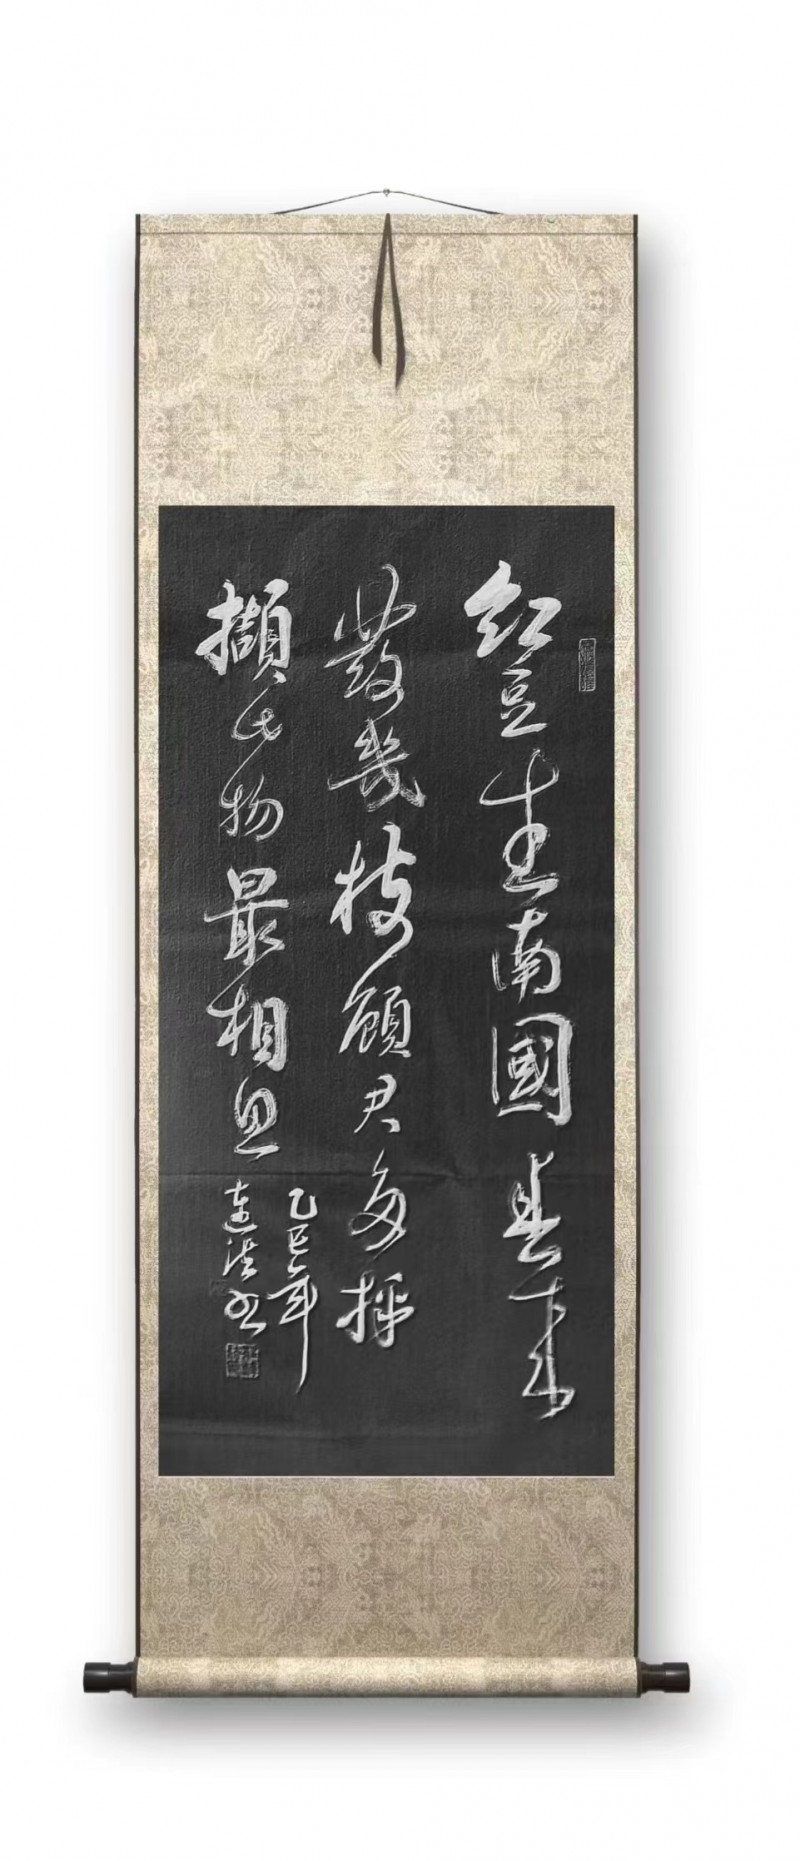 紅豆生南國春來
發幾枝願君多採
擷此物最相思
乙巳年
連浩书